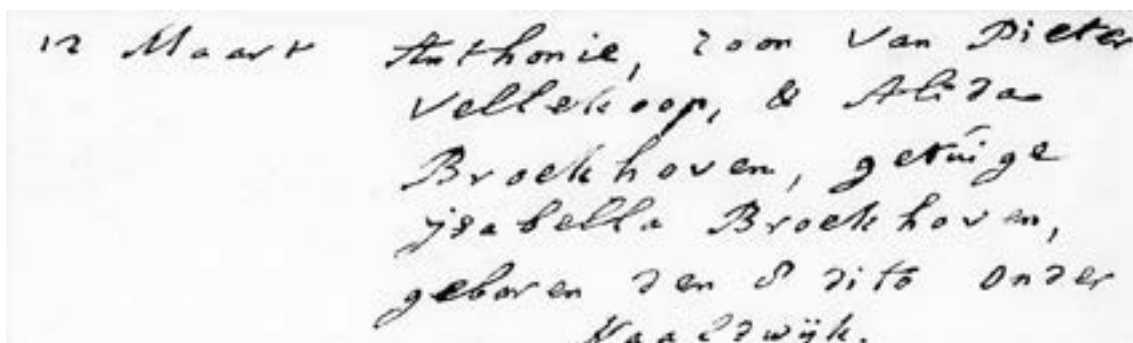 12 Maart Anthonie, zoon van Pieter
Vellekoop, & Alida
Broekhoven, getuige
ijsabella Broekhoven,
geboren den 8 dito onder
Naaldwijk.